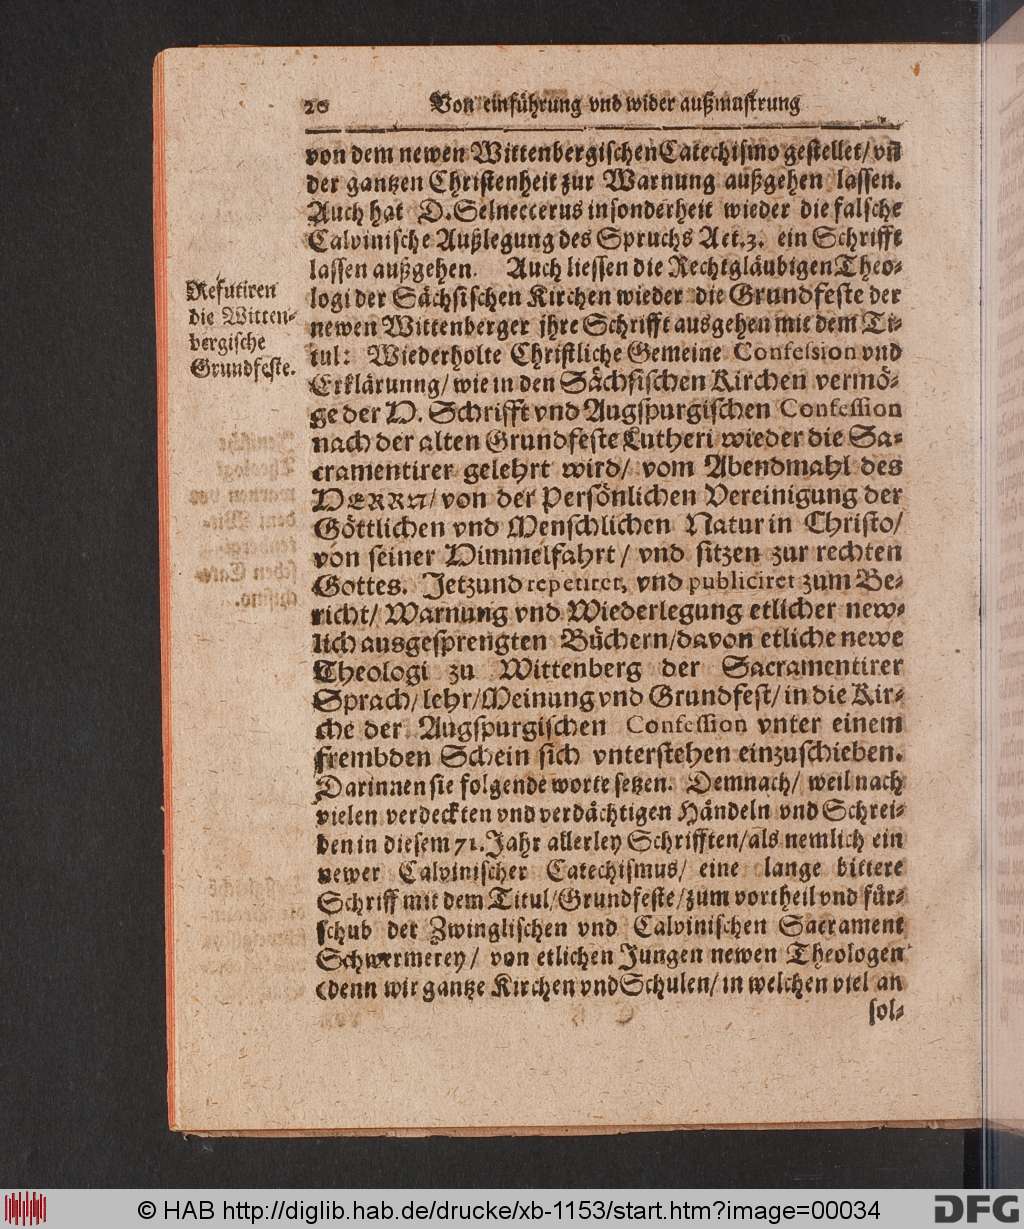 20 Von einführung vnd wider außmustrung
von dem newen Wittenbergischen Catechismo gestellet/ vn̄
der gantzen Christenheit zur Warnung außgehen lassen.
Auch hat D. Selneccerus insonderheit wieder die falsche
Calvinische Außlegung des Spruchs Act. 3. ein Schrifft
lassen außgehen. Auch liessen die Rechtgläubigen Theo-
logi der Sächsischen Kirchen wieder die Grundfeste der
newen Wittenberger jhre Schrifft ausgehen mit dem Ti-
tul: Wiederholte Christliche Gemeine Confession vnd
Erklärunng/ wie in den Sächsischen Kirchen vermö-
ge der H. Schrifft vnd Augspurgischen Confession
nach der alten Grundfeste Lutheri wieder die Sa-
cramentirer gelehrt wird/ vom Abendmahl des
HERRN/ von der Persönlichen Vereinigung der
Göttlichen vnd Menschlichen Natur in Christo/
von seiner Himmelfahrt/ vnd sitzen zur rechten
Gottes. Jetzund repetiret, vnd publiciret zum Be-
richt/ Warnung vnd Wiederlegung etlicher new-
lich ausgesprengten Büchern/ davon etliche newe
Theologi zu Wittenberg der Sacramentirer
Sprach/ lehr/ Meinung vnd Grundfest/ in die Kir-
che der Augspurgischen Confession vnter einem
frembden Schein sich vnterstehen einzuschieben.
Darinnen sie folgende worte setzen. Demnach/ weil nach
vielen verdeckten vnd verdächtigen Händeln vnd Schrei-
ben in diesem 71. Jahr allerley Schrifften/ als nemlich ein
newer Calvinischer Catechismus/ eine lange bittere
Schriff mit dem Titul/ Grundfeste/ zum vortheil vnd für-
schub der Zwinglischen vnd Calvinischen Sacrament
Schwermerey/ von etlichen Jungen newen Theologen
(denn wir gantze Kirchen vnd Schulen/ in welchen viel an
sol-
Refutiren
die Witten-
bergische
Grundfeste.
© HAB http://diglib.hab.de/drucke/xb-1153/start.htm?image=00034
DFG